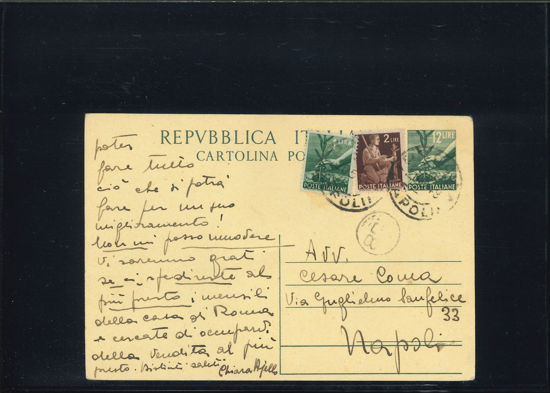 REPVBBLICA ITALIANA
CARTOLINA POSTALE
2 LIRE
12 LIRE
POSTE ITALIANE
POSTE ITALIANE
POSTE ITALIANE
NAPOLI
poter
fare tutto
ciò che si potrà
fare per un suo
miglioramento!
Non mi posso muovere
Vi saremmo grati
se ci spedireste al
più presto i mensili
della casa di Roma
e cercate di occuparvi
della vendita al più
presto. Distinti saluti
Chiara
Avv.
Cesare Coma
Via Guglielmo Sanfelice
33
Napoli